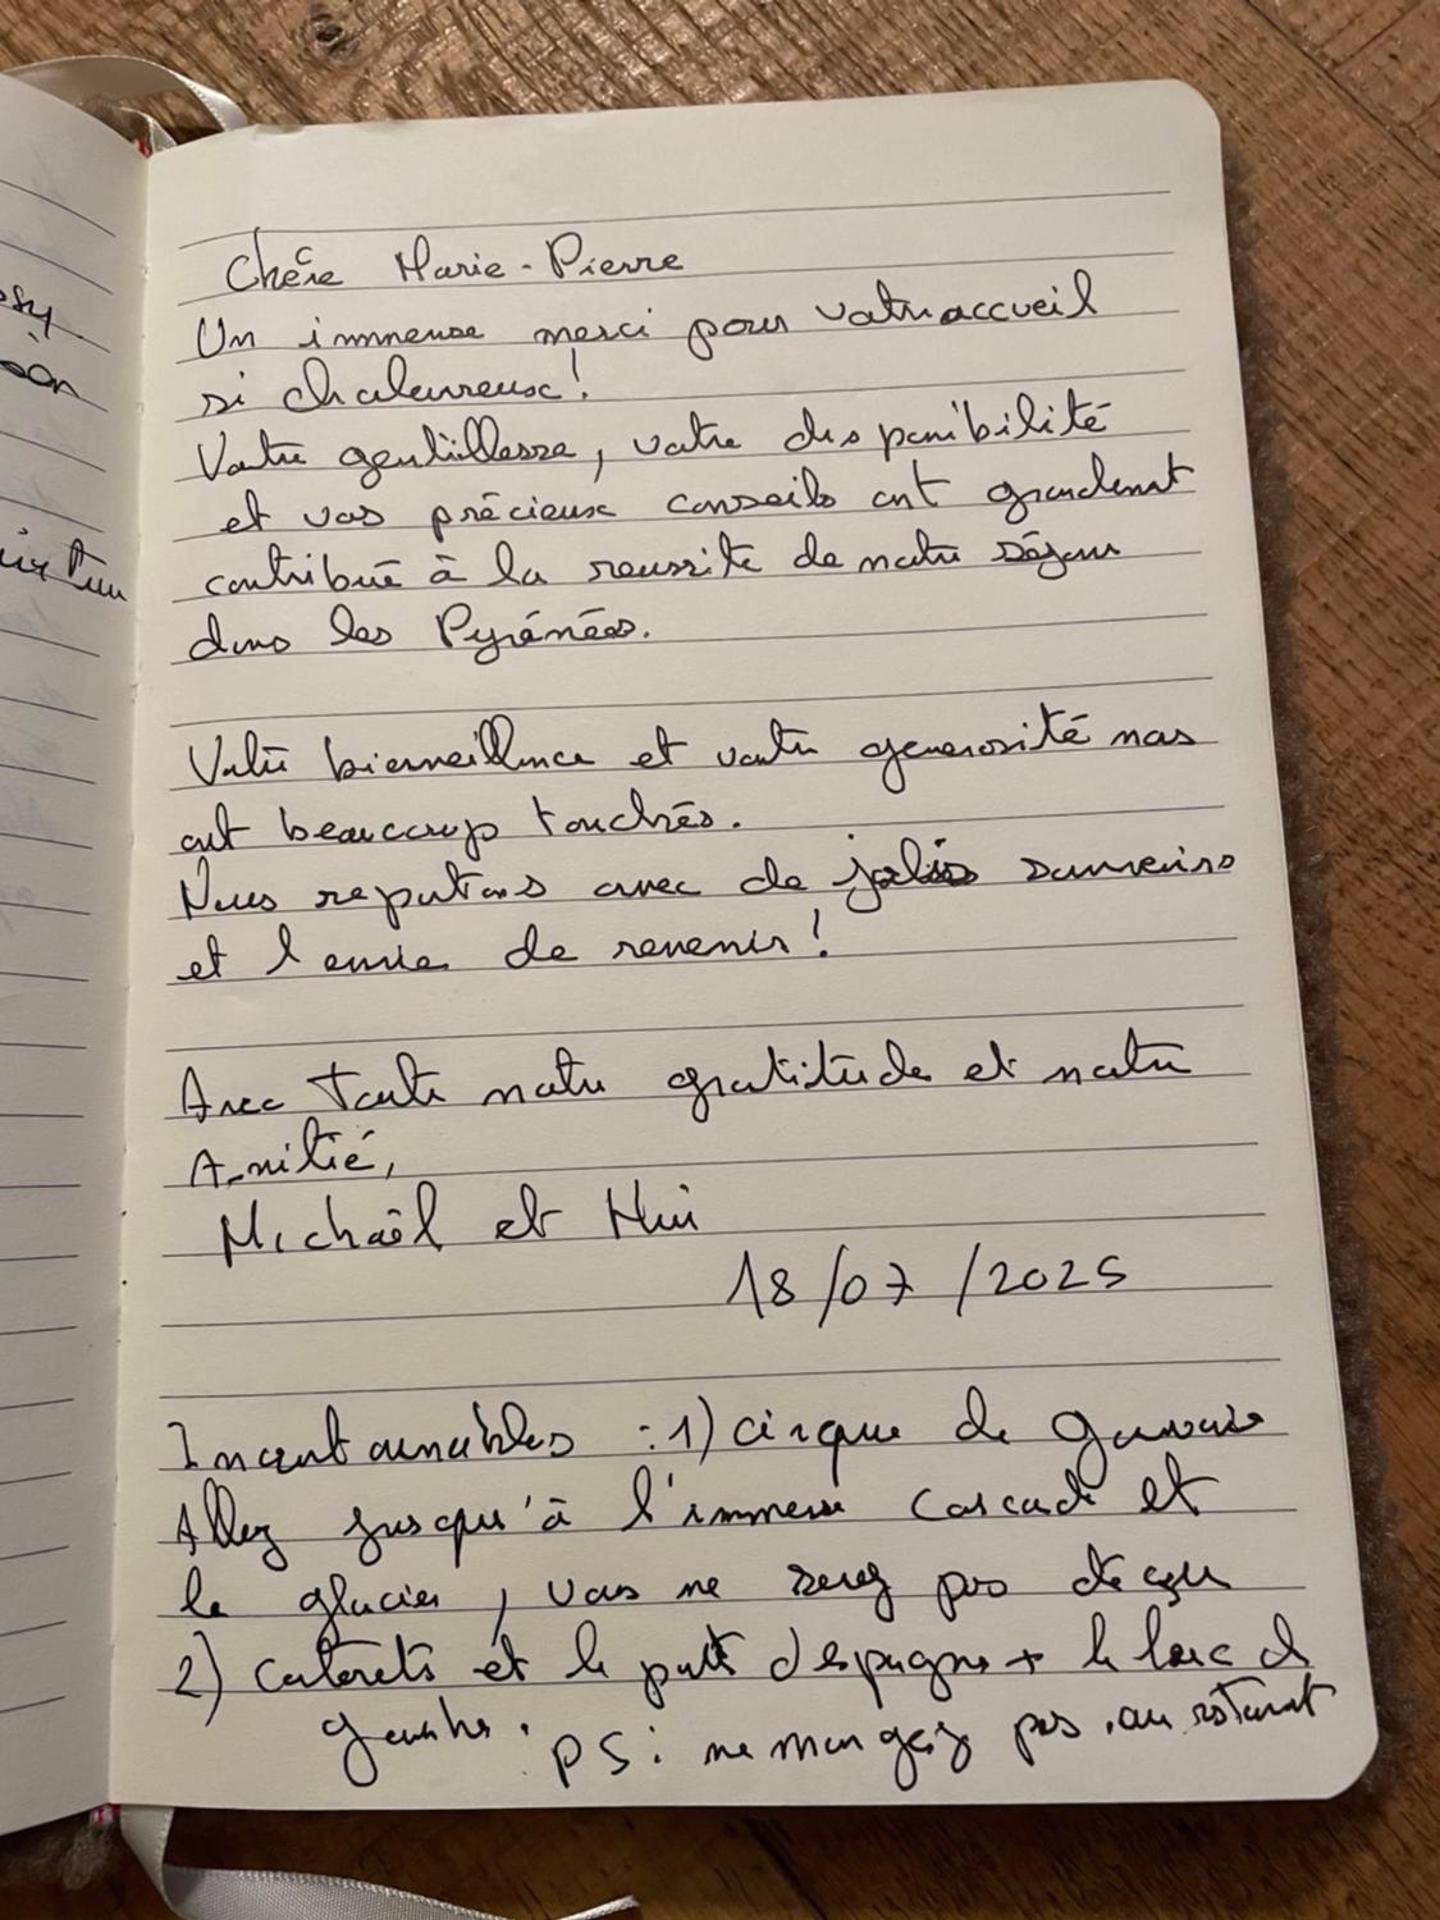 Chère Marie-Pierre
Un immense merci pour votre accueil
si chaleureux !
Votre gentillesse, votre disponibilité
et vos précieux conseils ont grandement
contribué à la reussite de notre séjour
dans les Pyrénées.
Votre bienveillance et votre generosité nous
ont beaucoup touchés.
Nous repartons avec de jolis souvenirs
et l'envie de revenir !
Avec toute notre gratitude et notre
Amitié,
Michaël et
18/07/2025
Incontournables : 1) cirque de gavarnie
Allez jusqu'à l'immense cascade et
le glacier, vous ne serez pas déçu
2) cauterets et le pont d'espagne + le lac de
gaube. PS : ne mangez pas au restaurant
sy.